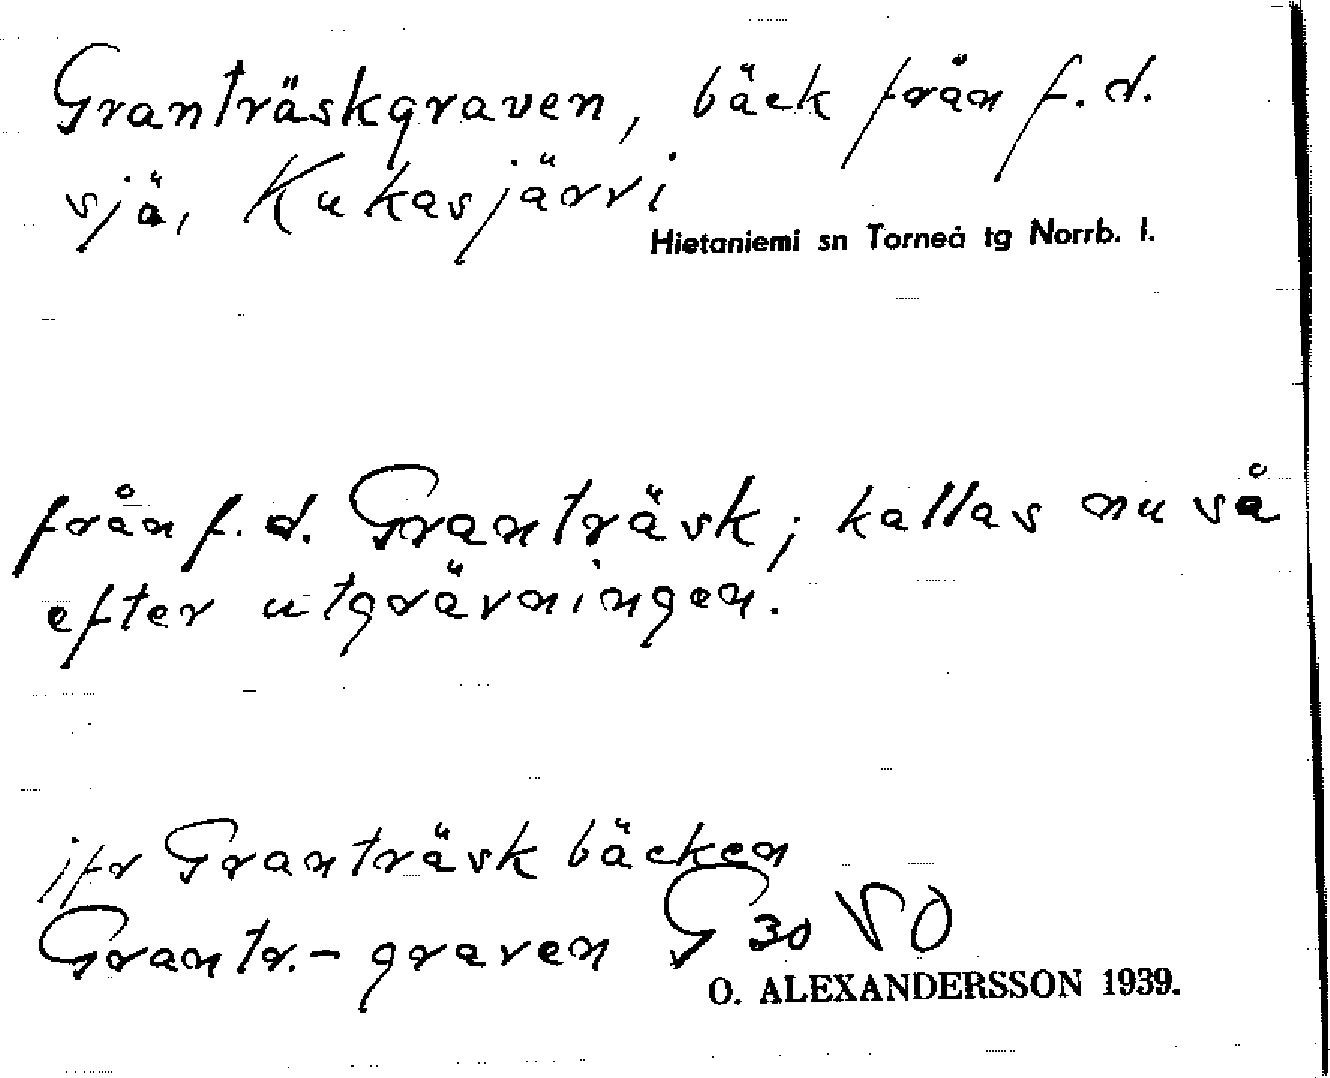 Granträskgraven, bäck från f.d.
sjä, Kukasjärvi
Hietaniemi sn Torneå tg Norrb. l.
från f.d. Granträsk; kallas nu så
efter utgrävningen.
jfr Granträskbäcken
Grantr.-graven G 30 SO
O. ALEXANDERSSON 1939.